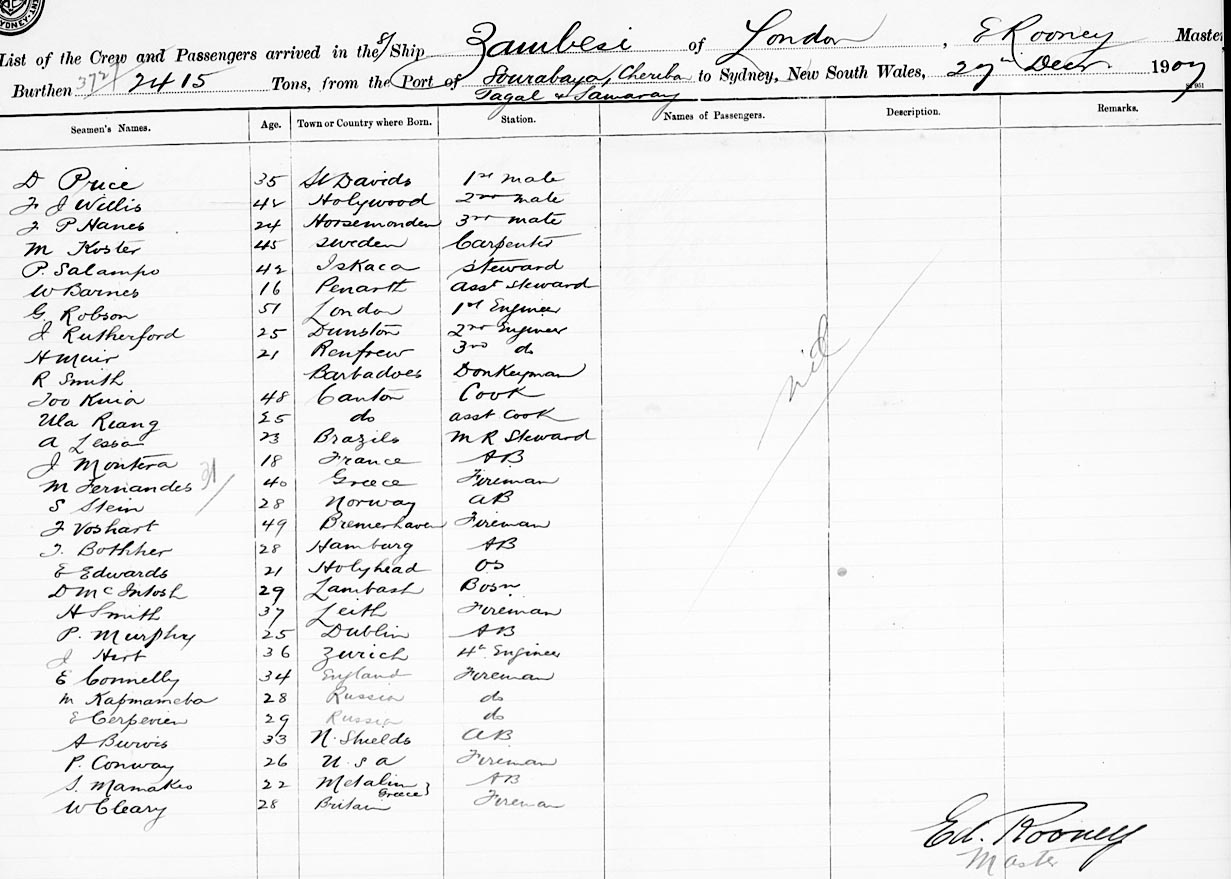 SYDNEY.
List of the Crew and Passengers arrived in the S/Ship Zambesi of London, E Rooney Master
Burthen 2415 Tons, from the Port of Sourabaya, Cheriba to Sydney, New South Wales, 29th Decr 1907
Tagal & Samarang
Seamen's Names. Age. Town or Country where Born. Station. Names of Passengers. Description. Remarks.
D Price 35 St Davids 1st mate
F J Willis 42 Holywood 2nd mate
J P Hanes 24 Horsemonden 3rd mate
M Koster 45 Sweden Carpenter
P. Salampo 42 Iskaca Steward
W Barnes 16 Penarth asst Steward
G. Robson 51 London 1st Engineer
J Rutherford 25 Dunston 2nd Engineer
H Muir 21 Renfrew 3rd do
R Smith Barbadoes Donkeyman
Too Kuia 48 Canton Cook
Ula Kiang 25 do asst Cook
A Lessa 23 Brazils M R Steward
J Montera 18 France AB
M Fernandes 40 Greece Fireman
31
S Stein 28 Norway AB
J Voshart 49 Bremerhaven Fireman
T. Bothher 28 Hamburg AB
E Edwards 21 Holyhead OS
D McIntosh 29 Lambash Bosn
H Smith 37 Leith Fireman
P. Murphy 25 Dublin AB
J Hirt 36 Zurich 4th Engineer
E Connelly 34 England Fireman
M Kapmameba 28 Russia do
E Cerpevien 29 Russia do
A Burvis 33 N. Shields AB
P. Conway 26 U.S.A Fireman
S. Mamakis 22 Metalin Greece} AB
W Cleary 28 Britain Fireman
nil
Ed. Rooney
Master